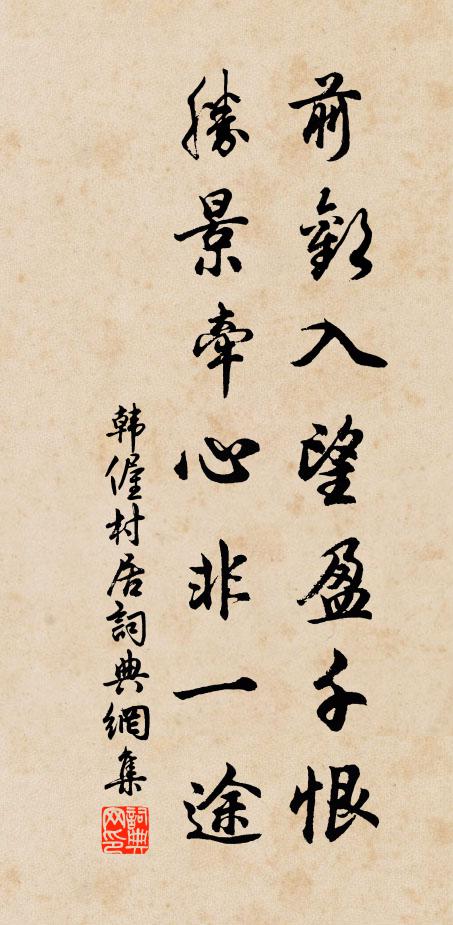 前歡入望盈千恨
勝景牽心非一途
韩偓村居詞典網集
詞典网印